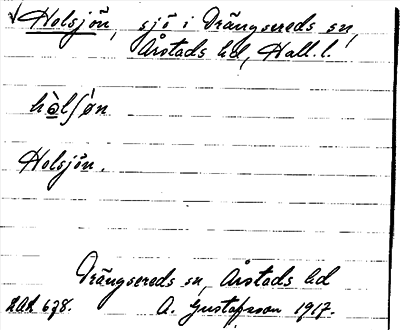 √ Holsjön, sjö i Drängsereds sn,
Årstads hd, Hall. l.
hòlʃøn
Holsjön.
Drängsereds sn, Årstads hd
A. Gustafsson 1917.